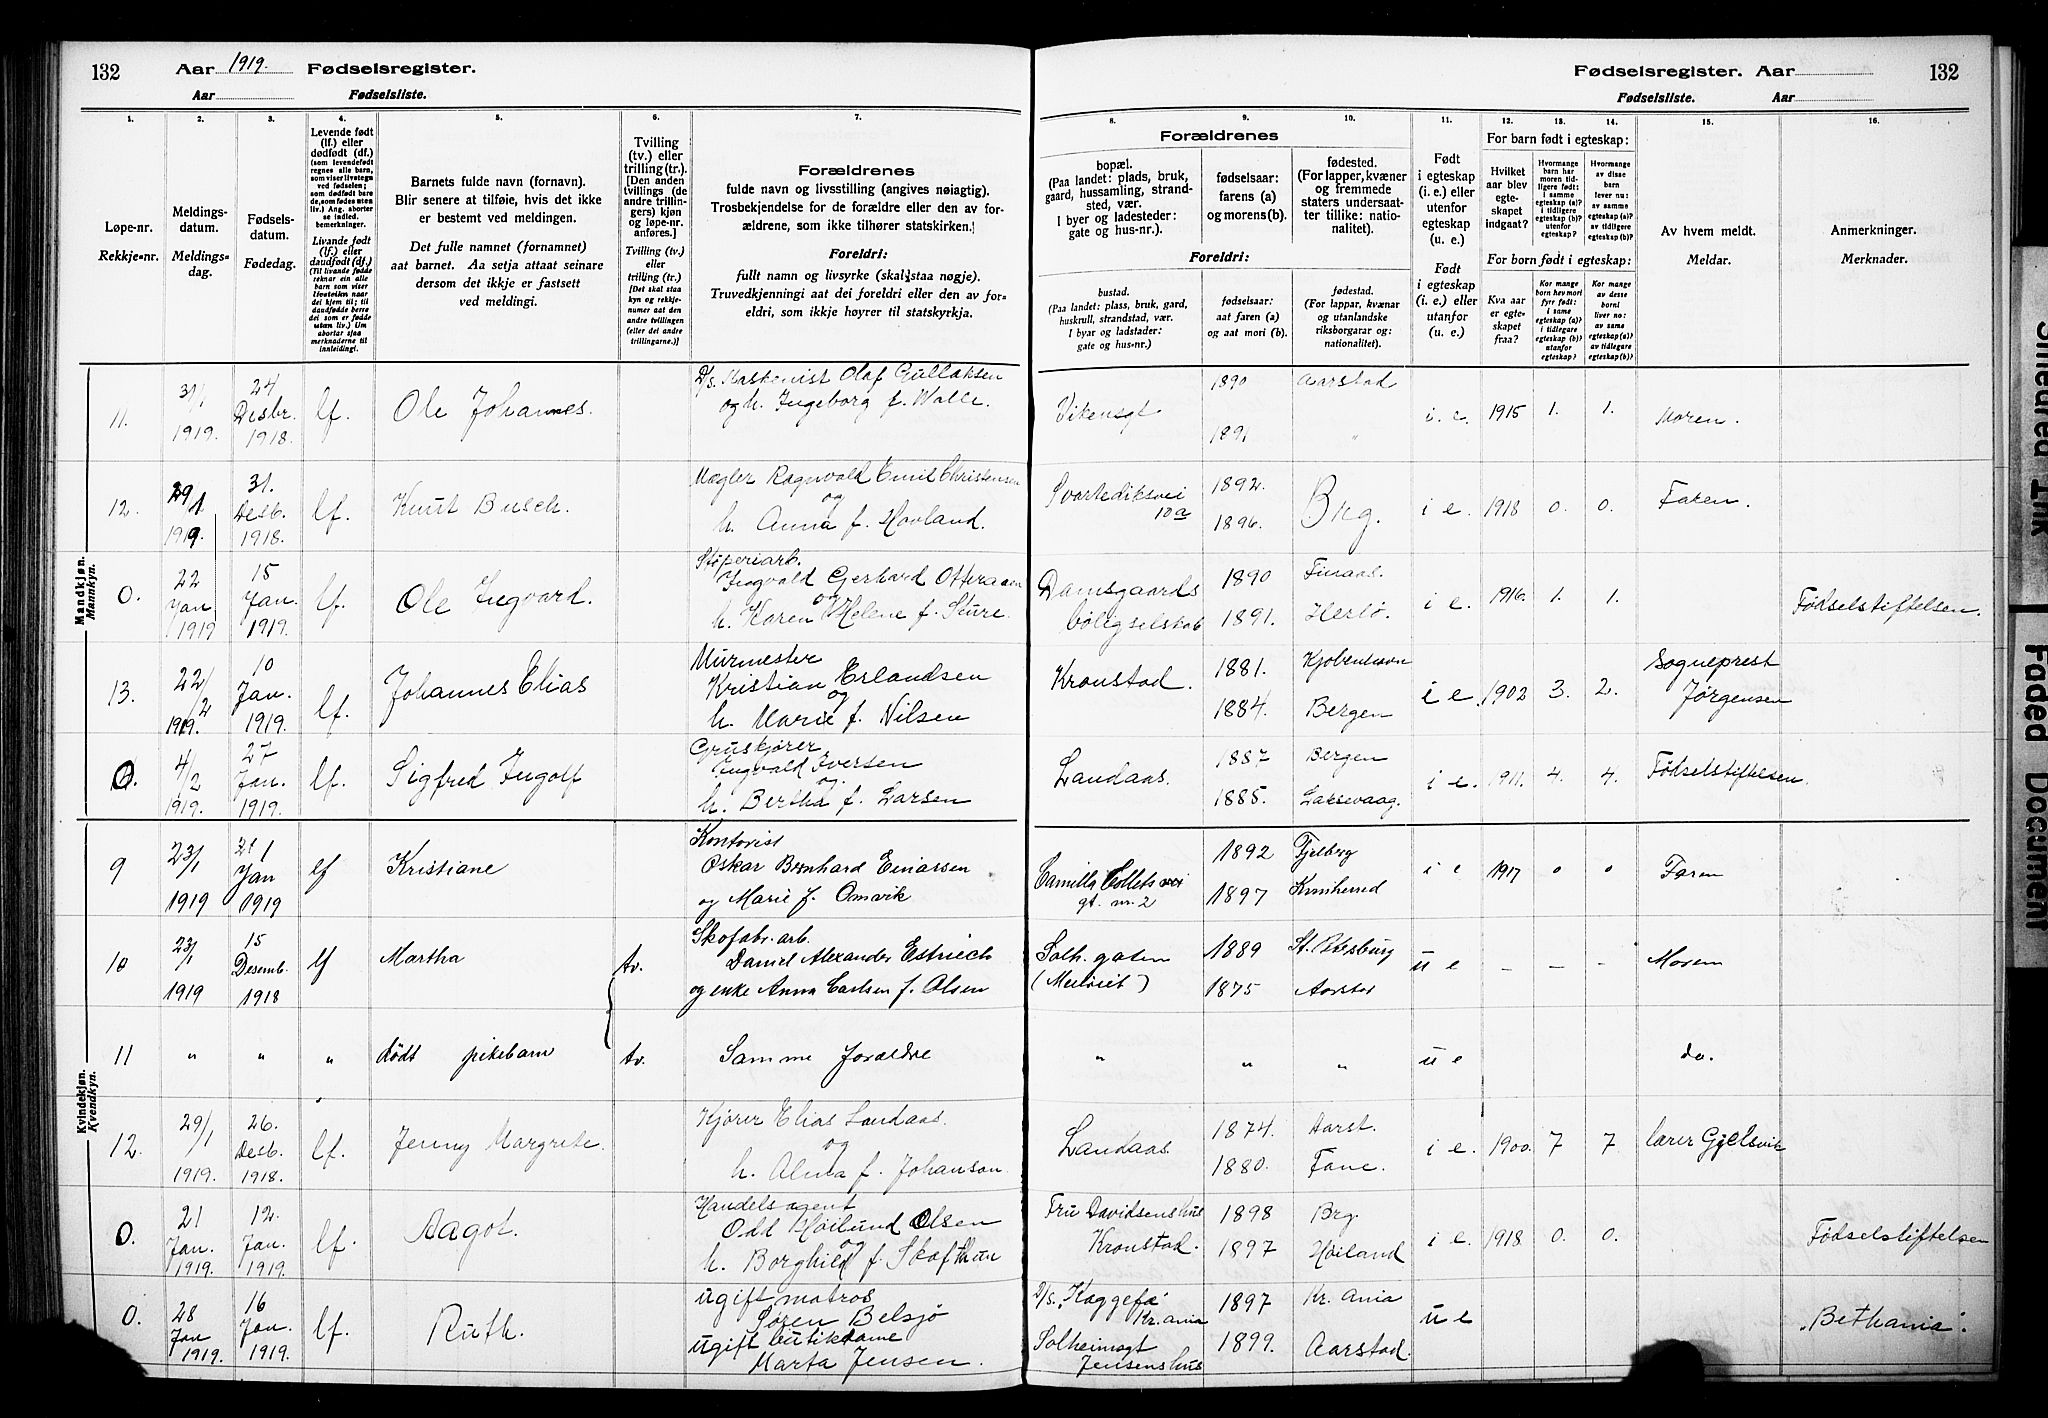 132 Aar 1919. Fødselsregister.
Aar Fødselsliste.
Fødselsregister. Aar 132
Fødselsliste. Aar
1. 2. 3. 4. 5. 6. 7. 8. 9. 10. 11. 12. 13. 14. 15. 16.
Løpe-nr.
Rekkje-nr.
Meldings-
datum.
Meldings-
dag.
Fødsels-
datum.
Fødedag.
Levende født
(lf.) eller
dødfødt (df.)
(som levendefødt
regnes alle barn,
som viser livstegn
ved fødselen;
som dødfødt bare
de, som fødes uten
liv.) Ang. aborter
se indled.
bemerkninger.
Livande født
(lf.) eller
daudfødt (df.)
(Til livande fødde
reknar ein alle
barn som viser
livsteikn naar
dei kjem til; til
daudfødde berre
dei som er fødde
utan liv.) Um
abortar sjaa
merknaderne til
innleidingi.
Barnets fulde navn (fornavn).
Blir senere at tilføie, hvis det ikke
er bestemt ved meldingen.
Det fulle namnet (fornamnet)
aat barnet. Aa setja attaat seinare
dersom det ikkje er fastsett
ved meldingi.
Tvilling
(tv.) eller
trilling (tr.).
[Den anden
tvillings (de
andre trillin-
gers) kjøn
og løpe-nr.
anføres.]
Tvilling (tv.)
eller
trilling (tr.)
[Det skal staa
kyn og rekkje-
numer aat den
andre tvillingen
(eller dei andre
trillingarne.)]
Forældrenes
fulde navn og livsstilling (angives nøiagtig).
Trosbekjendelse for de forældre eller den av for-
ældrene, som ikke tilhører statskirken.
Foreldri:
fullt namn og livsyrke (skal staa nøgje).
Truvedkjenningi aat dei foreldri eller den av for-
eldri, som ikkje høyrer til statskyrkja.
Forældrenes
bopæl.
(Paa landet: plads, bruk,
gaard, hussamling, strand-
sted, vær.
I byer og ladesteder:
gate og hus-nr.).
fødselsaar:
farens (a)
og morens (b).
fødested.
(For lapper, kvæner
og fremmede
staters undersaat-
ter tillike: natio-
nalitet).
Foreldri:
bustad.
(Paa landet: plass, bruk, gard,
huskrull, strandstad, vær.
I byar og ladstader:
gate og hus-nr.)
fødselsaar:
aat faren (a)
og aat mori (b).
fødestad.
(For lappar, kvænar
og utanlandske
riksborgarar og:
nationalitet).
Født
i egteskap
(i. e.) eller
utenfor
egteskap
(u. e.)
Født
i egteskap
(i. e.) eller
utanfor
(u. e.)
For barn født i egteskap:
Hvilket
aar blev
egte-
skapet
indgaat?
Hvormange
barn har
moren tid-
ligere født:
i samme
egteskap (a)?
i tidligere
egteskap (b)?
utenfor
egteskap?
Hvormange
av disse
barn
lever nu:
av samme
egteskap (a)?
av tidligere
egteskap (b)?
For born født i egteskap:
Kva aar
er egte-
skapet
fraa?
Kor mange
born hev mori
fyrr født:
i same
egteskap (a)?
i tidlegare
egteskap (b)?
utanfor
egteskap?
Kor mange
av desse
borni
liver no:
av same
egteskap (a)?
av tidlegare
egteskap (b)?
Av hvem meldt.
Meldar.
Anmerkninger.
Merknader.
Mandkjøn.
Mannkyn.
11. 31/1 1919. 24 Desbr. 1918. lf. Ole Johannes. D/s. Maskinist Olaf Gullaksen
og h. Ingeborg f. Walle. Vikensgt 1890 1891 Aarstad " i. e. 1915 1. 1. Moren.
12. 29/1 1919. 31. Desb. 1918. lf. Knut Busch. Mægler Ragnvald Emil Christensen
og
h. Anna f. Hovland. Svartediksvei
10a 1892. 1896. Brg. i e. 1918 0. 0. Faren.
0. 22 Jan 1919 15 Jan. 1919. lf. Ole Ingvard. Støperiarb.
Ingvald Gerhard Otteraaen
og
h. Karen Helene f. Sture. Damsgaards
boligselskab 1890 1891. Finaas. Herlø. i e. 1916. 1. 1. Fødselstiftelsen.
13. 22/2 1919. 10 Jan. 1919. lf. Johannes Elias Murmester
Kristian Erlandsen
og
h. Marie f. Nilsen Kronstad. 1881. 1884. Kjøbenhavn Bergen i e. 1902 3. 2. Sogneprest
Jørgensen
0. 4/2 1919. 27 Jan. 1919. lf. Sigfred Ingolf Gruskjører
Ingvald Iversen
og
h. Bertha f. Larsen Landaas. 1887 1885. Bergen Laksevaag. i e. 1911. 4. 4. Fødselstiftelsen.
Kvindekjøn.
Kvendkyn.
9 23/1 1919 21 Jan 1919 lf Kristiane Kontorist
Oskar Bernhard Einarsen
og Marie f. Omvik Camilla Collets vei
gt. nr. 2 1892 1897 Fjelberg Kvinherred i e 1917 0 0 Faren
10 23/1 1919 15 Desemb. 1918 lf Martha tv. Skofabr. arb.
Daniel Alexander Estriech
og enke Anna Carlsen f. Olsen Solh. gaten 1889 1875 St. Petersburg Aarstad u e - - - Moren
11 " " " dødt pikebarn tv. Samme forældre " " " u e do.
12. 29/1 1919. 26. Desb. 1918. lf. Jenny Margrete. Kjører Elias Landaas.
og
h. Alma f. Johanson. Landaas. 1874. 1880. Aarst. Fane. i e. 1900. 7 7 lærer Gjelsvik
0. 21 Jan. 1919. 12. Jan. 1919. lf. Aagot. Handelsagent
Odd Høilund Olsen
og
h. Borghild f. Skofthun Fru Davidsens hus
Kronstad. 1898 1897 Brg. Høiland i e. 1918 0. 0. Fødselstiftelsen
0. 28 Jan 1919. 16 Jan. 1919. lf. Ruth. ugift matros
Søren Belsjø
ugift butikdame
Marta Jensen. D/s. "Kaggefa"
Kr. ania
Solheimsgt
Jensens hus 1897 1899. Kr. ania Aarstad. u e "Bethania".
Smeared Ink
Faded Document